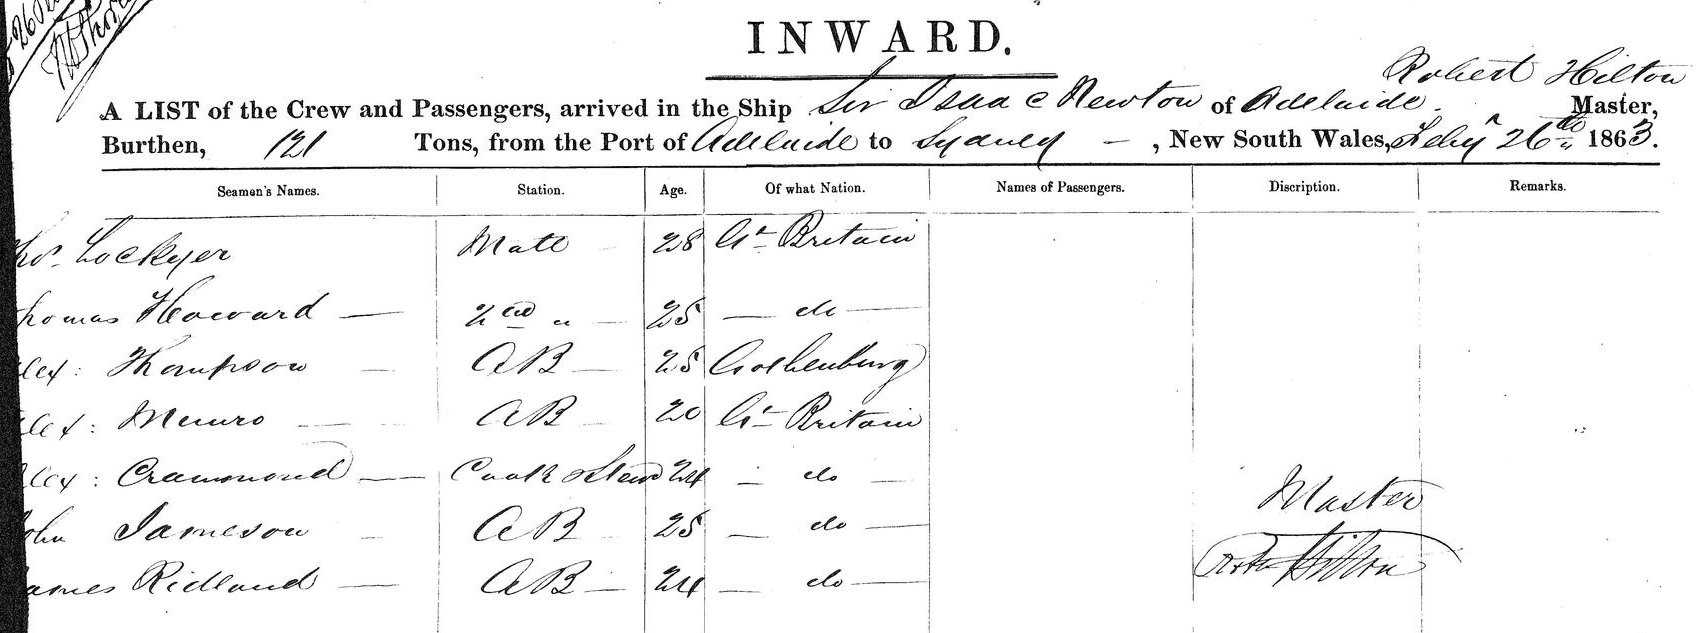 INWARD.
Robert Hilton
A LIST of the Crew and Passengers, arrived in the Ship Sir Isaac Newton of Adelaide. Master,
Burthen, 121 Tons, from the Port of Adelaide to Sydney – , New South Wales, Feby 26th 1863.
Seamen's Names. Station. Age. Of what Nation. Names of Passengers. Discription. Remarks.
Lockyer Mate 28 Gt Britain
homas Howard — 2nd " 25 — do —
lex: Thompson — AB 25 Gothenburg
lex: Munro — AB 20 Gt Britain
lex: Crammond — Cook & Stewd 24 — do —
Master
ohn Jameson — AB 25 — do —
Robt Hilton
ames Ridland — AB 24 — do —